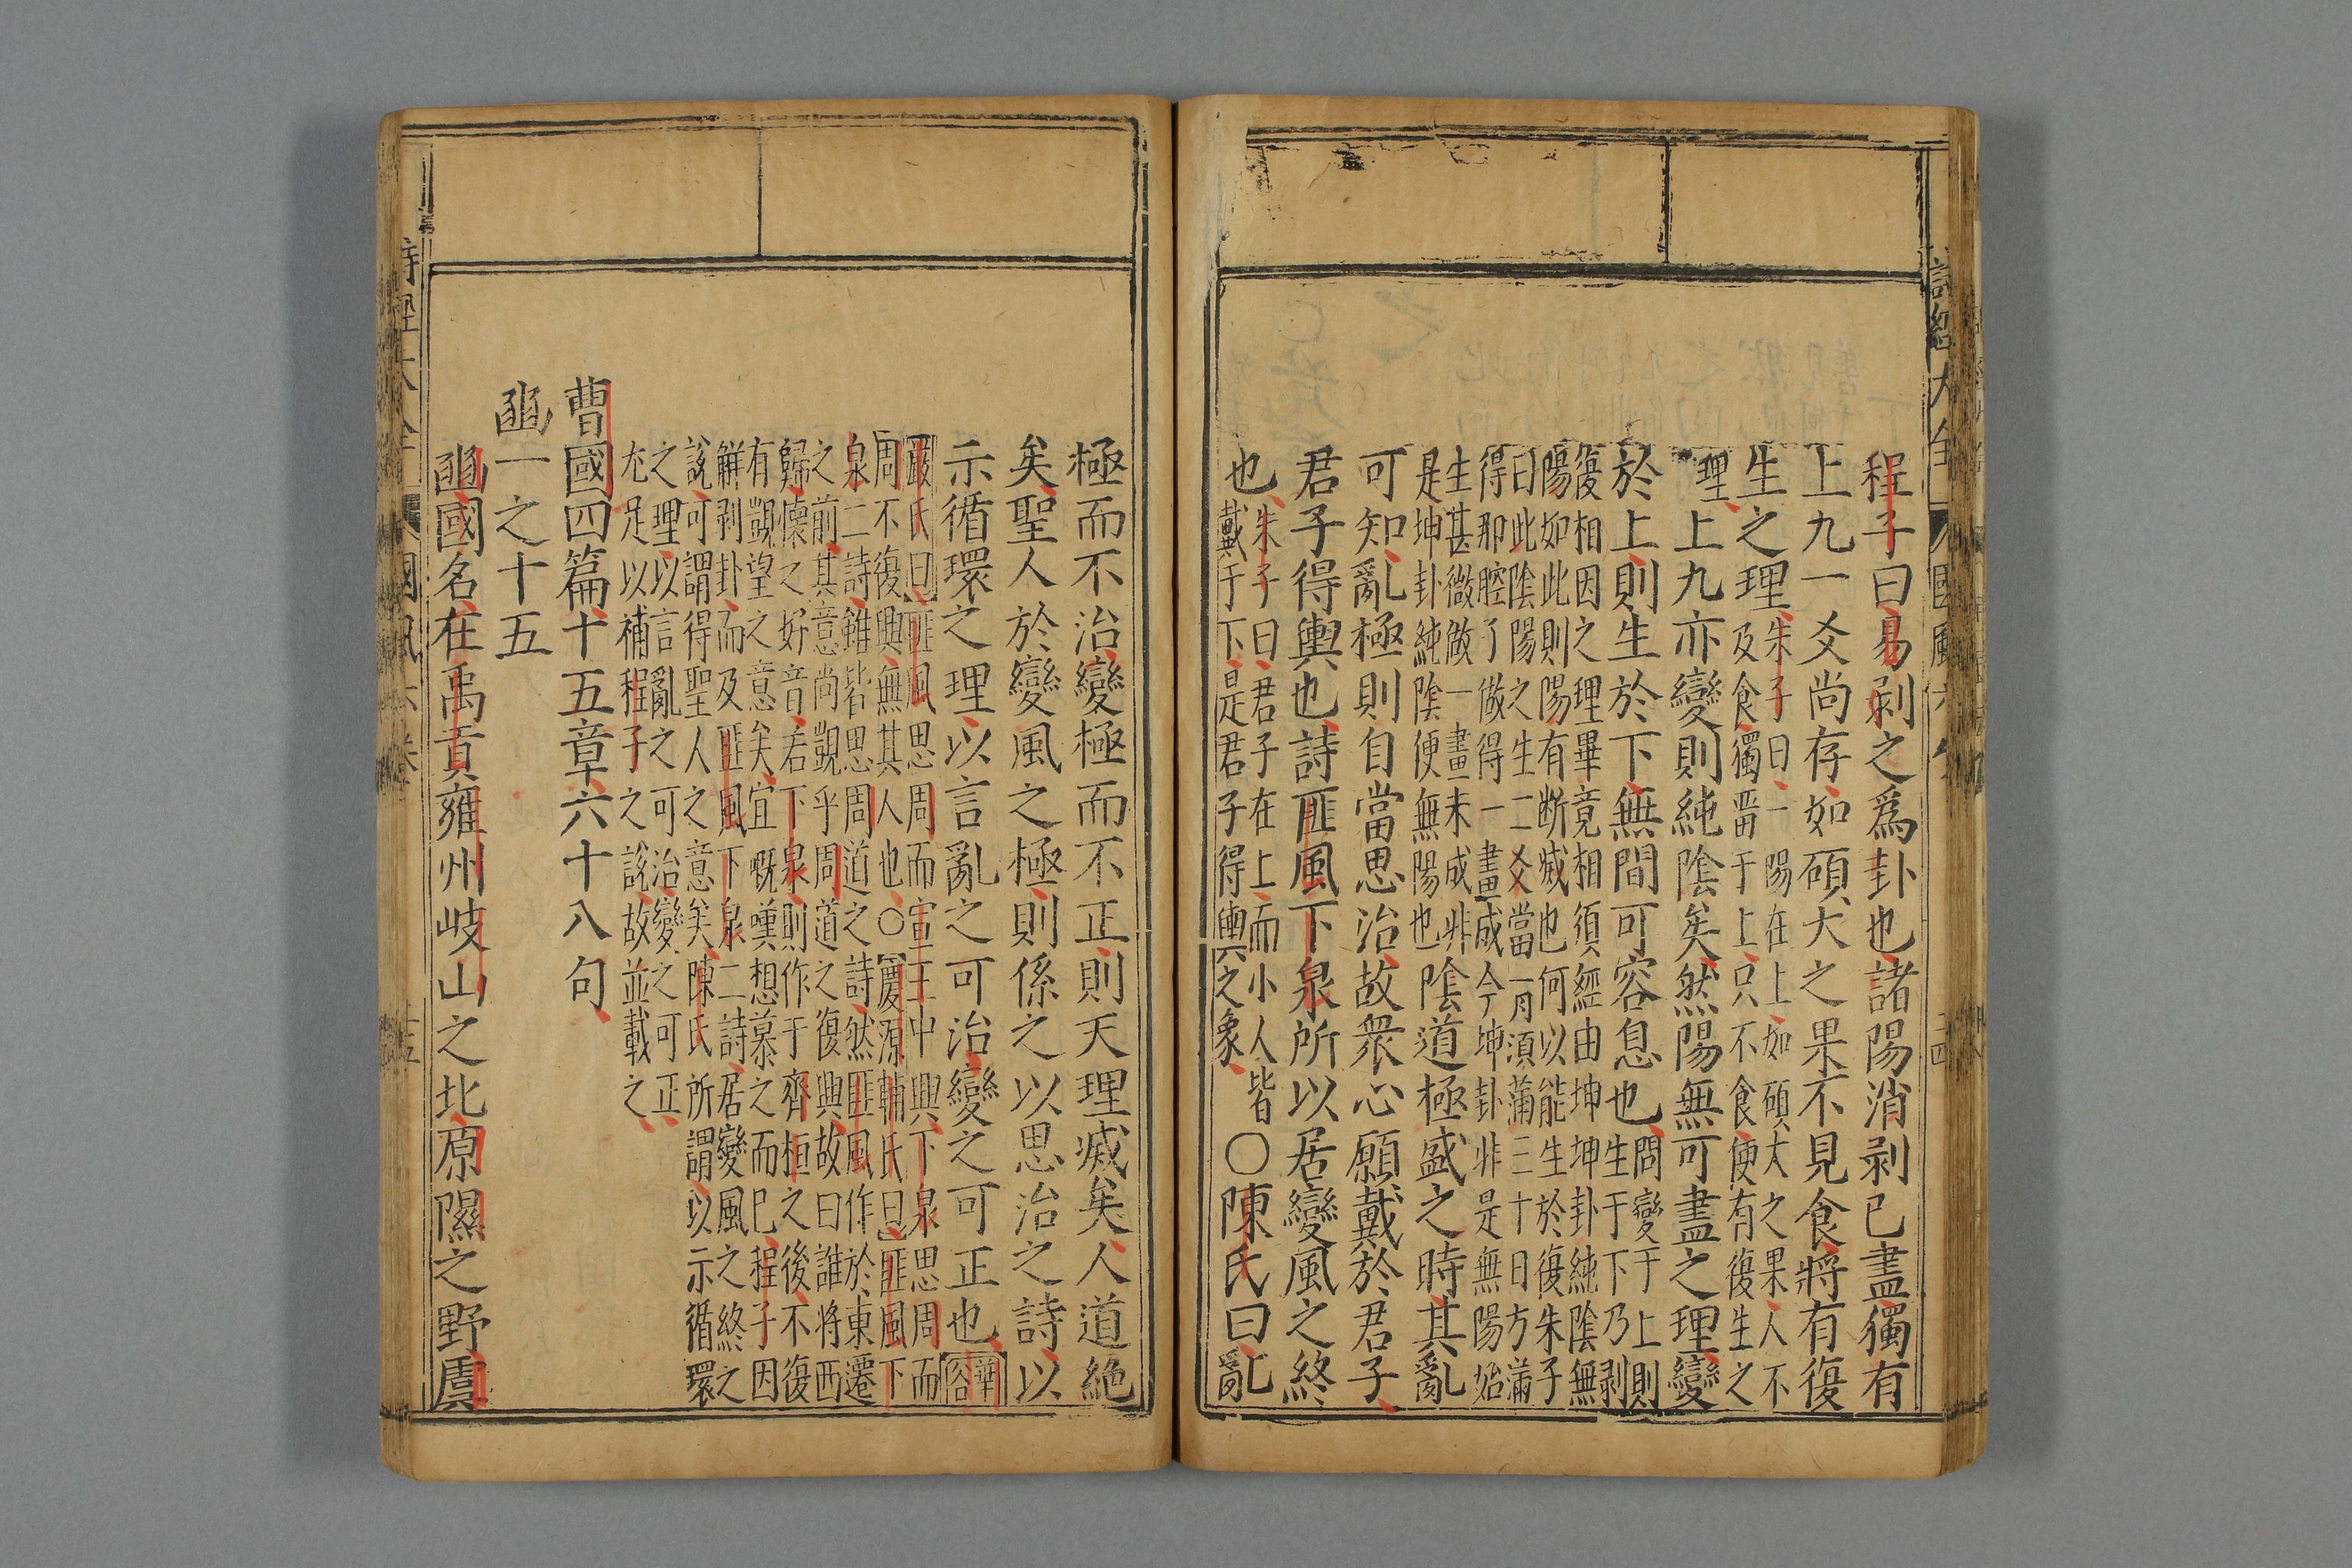 程子曰易剥之爲卦也諸陽消剥已盡獨有
上九一爻尚存如碩大之果不見食將有復
生之理朱子曰一陽在上如碩大之果人不
及食獨畱于上只不食便有復生之
理上九亦變則純陰矣然陽無可盡之理變
於上則生於下無間可容息也問變于上則
生于下乃剥
復相因之理畢竟相須經由坤坤卦純陰無
陽如此則陽有断㓕也何以能生於復朱子
曰此陰陽之生一爻當一月須滿三十日方滿
得那腔了做得一畫成今坤卦非是無陽始
生甚微做一畫未成非
是坤卦純陰便無陽也陰道極盛之時其亂
可知亂極則自當思治故衆心願戴於君子
君子得輿也詩匪風下泉所以居變風之終
也朱子曰君子在上而小人皆
戴于下是君子得輿之象○陳氏曰亂
極而不治變極而不正則天理㓕矣人道絶
矣聖人於變風之極則係之以思治之詩以
示循環之理以言亂之可治變之可正也華
谷
嚴氏曰匪風思周而宣王中興下泉思周而
周不復興無其人也○慶源輔氏曰匪風下
泉二詩雖皆思周道之詩然匪風作於東遷
之前其意尚覬乎周道之復興故曰誰將西
歸懷之好音若下泉則作于齊桓之後不復
有覬望之意矣宜嘅嘆想慕之而已程子因
解剥卦而及匪風下泉二詩居變風之終之
說可謂得聖人之意矣陳氏所謂以示循環
之理以言亂之可治變之可正
尤足以補程子之說故並載之
曹國四篇十五章六十八句
豳一之十五
豳國名在禹貢雍州岐山之北原隰之野虞